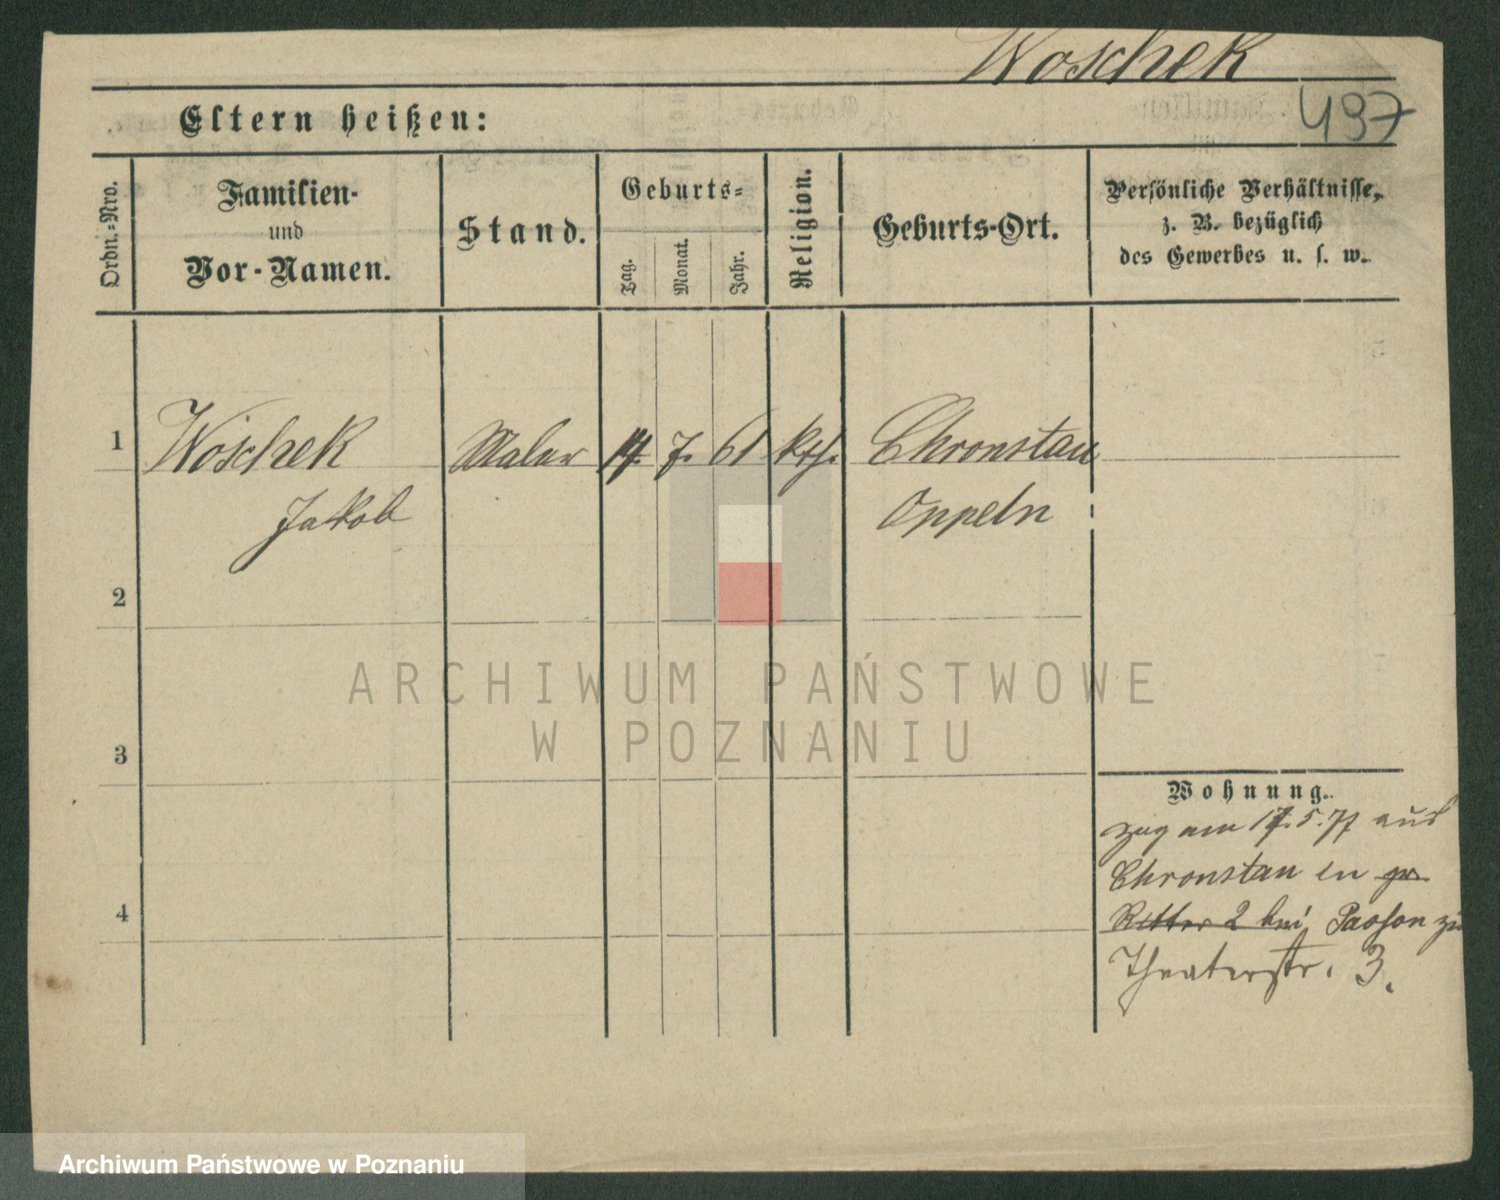 Woschek
497
Eltern heißen:
Ordn.-Nro.
Familien-
und
Vor-Namen.
Stand.
Geburts-
Tag.
Monat.
Jahr.
Religion.
Geburts-Ort.
Persönliche Verhältnisse,
z. B. bezüglich
des Gewerbes u. s. w.
1 Woschek Maler 14. 7. 61 kth. Chronstau
Jakob Oppeln
2
3
4
Wohnung.
Zug am 17.5.77 aus
Chronstau in
Ritter 2 bei Passon zu
Theaterstr. 3.
ARCHIWUM PAŃSTWOWE
W POZNANIU
Archiwum Państwowe w Poznaniu